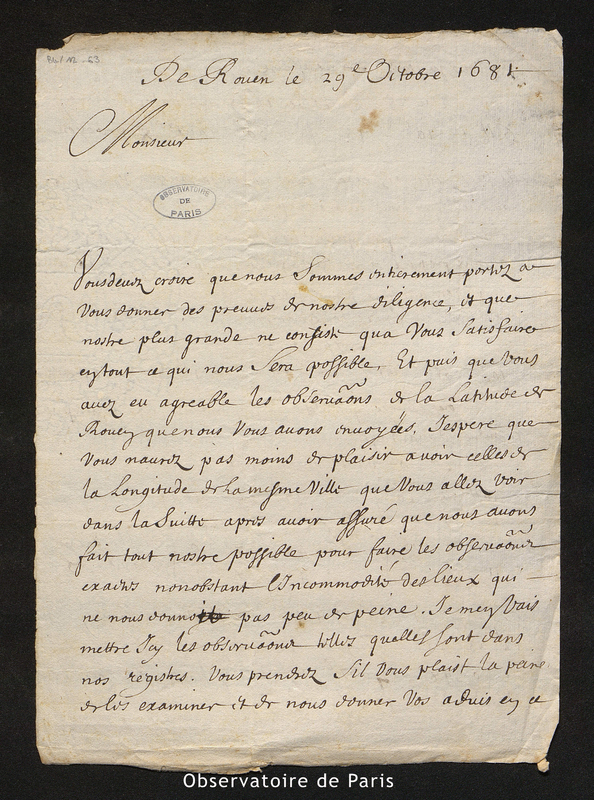 De Rouen le 29e Octobre 1681
Monsieur
OBSERVATOIRE
DE
PARIS
Vousdevez croire que nous sommes entierement portez a
Vous donner des preuves de nostre diligence, et que
nostre plus grande ne consiste qua Vous Satisfaire
en tout ce qui nous Sera possible, Et puis que Vous
avez eu agreable les observaôns de la Latitude de
Rouen que nous Vous avons envoyées, Jespere que
Vous naurez pas moins de plaisir a voir celles de
la Longitude de la mesme Ville que Vous allez voir
dans la Suitte apres avoir assuré que nous avons
fait tout nostre possible pour faire les observaôns
exactes nonobstant l'Incommodité des lieux qui
ne nous donne pas peu de peine. Je
mettre Icy les observaôns telles quelles sont dans
nos registres. Vous prendrez Sil Vous plaist la peine
de les examiner et de nous donner Vos advis en ce
Observatoire de Paris